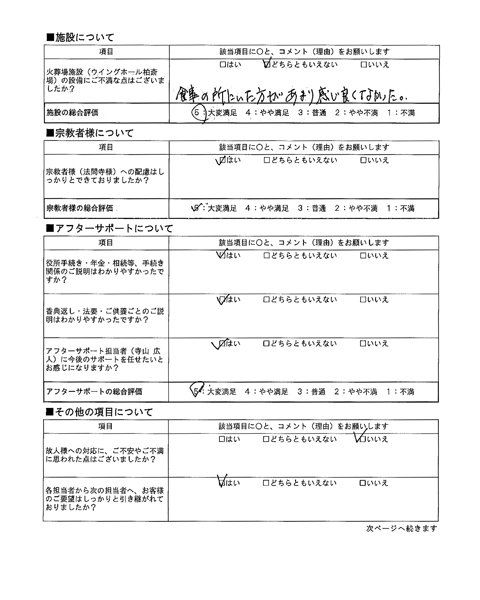 ■施設について
項目 該当項目に○と、コメント（理由）をお願いします
火葬場施設（ウイングホール柏斎
場）の設備にご不満な点はございま
したか？
□はい ☑どちらともいえない □いいえ
食事の所にいた方があまり感じ良くなかった。
施設の総合評価 5：大変満足 4：やや満足 3：普通 2：やや不満 1：不満
■宗教者様について
項目 該当項目に○と、コメント（理由）をお願いします
宗教者様（法問寺様）への配慮はし
っかりとできておりましたか？
☑はい □どちらともいえない □いいえ
宗教者様の総合評価 5：大変満足 4：やや満足 3：普通 2：やや不満 1：不満
■アフターサポートについて
項目 該当項目に○と、コメント（理由）をお願いします
役所手続き・年金・相続等、手続き
関係のご説明はわかりやすかったで
すか？
☑はい □どちらともいえない □いいえ
香典返し・法要・ご供養ごとのご説
明はわかりやすかったですか？
☑はい □どちらともいえない □いいえ
アフターサポート担当者（寺山 広
人）に今後のサポートを任せたいと
お感じになりますか？
☑はい □どちらともいえない □いいえ
アフターサポートの総合評価 5：大変満足 4：やや満足 3：普通 2：やや不満 1：不満
■その他の項目について
項目 該当項目に○と、コメント（理由）をお願いします
故人様への対応に、ご不安やご不満
に思われた点はございましたか？
□はい □どちらともいえない ☑いいえ
各担当者から次の担当者へ、お客様
のご要望はしっかりと引き継がれて
おりましたか？
☑はい □どちらともいえない □いいえ
次ページへ続きます